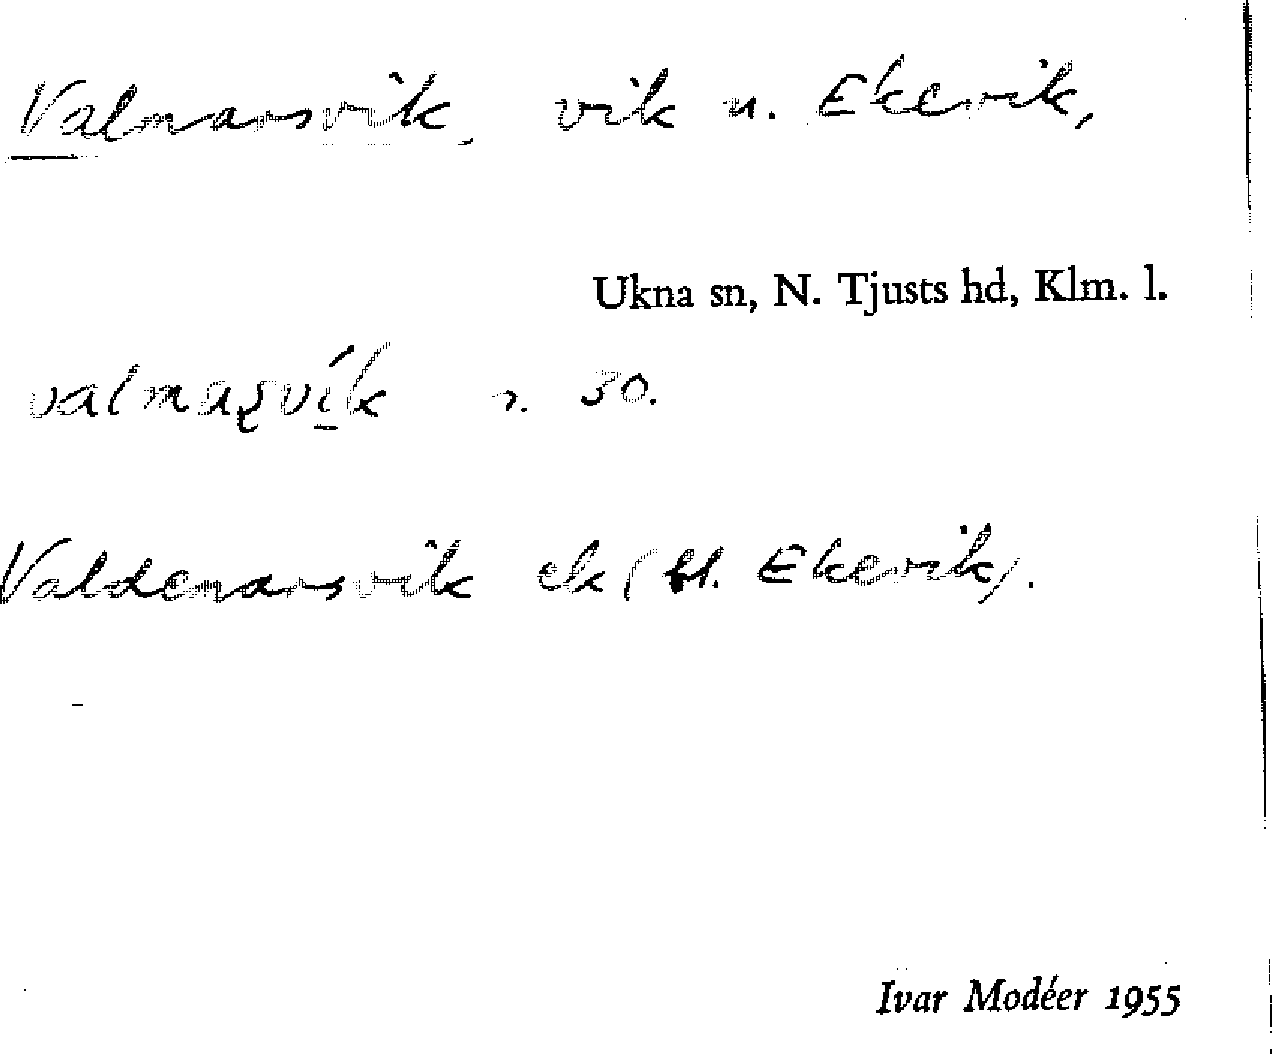 Valmarsvik, vik u. Ekevik,
Ukna sn, N. Tjusts hd, Klm. l.
valmaʂvík 2. 30.
Valdemarsvik ek (bl. Ekevik).
Ivar Modéer 1955